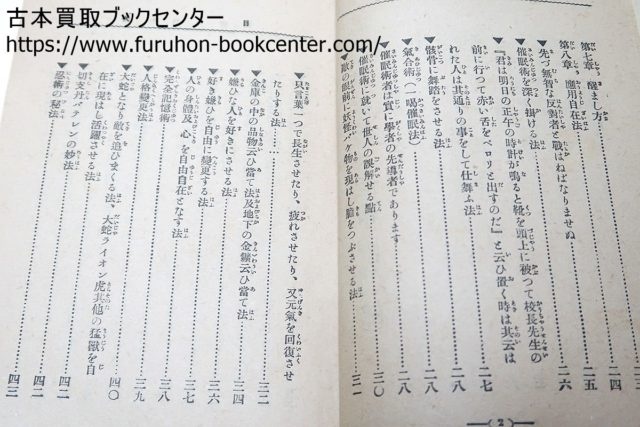 古本買取ブックセンター
https://www.furuhon-bookcenter.com/
目
第七章、醒まし方……二四
第八章、應用自在法……二五
▼先づ無智な反對者と戰はねばなりませぬ……二六
▼催眠術を深く掛ける法
▼『君は明日の正午の時計が鳴ると靴を頭上に被つて校長先生の
前に行つて赤い舌をペロリと出すのだ』と云ひ置く時は其云は
れた人は其通りの事をして仕舞ふ法……二七
▼骸骨に舞踏をさせる法……二八
▼氣合術(一喝催眠法)……二八
▼催眠術者は實に學者の先導者であります
▼催眠術に就て世人の誤解せる點……三〇
の眼前に妖怪バケ物を現はし膽をつぶさせる法……三一
2
▼只言葉一つで長生させたり、疲れさせたり、又元氣を回復させ
たりする法……三二
▼金庫の中の品物云ひ當て法及地下の金鑛云ひ當て法……三四
▼嫌ひな人を好きにさせる法
▼好き嫌ひを自由に變更する法……三六
▼人の身體及び心を自由自在となす法……三七
▼完全記憶術……三八
▼人格變更法……三九
▼大蛇となり敵を追ひまくる法、大蛇ライオン虎其他の猛獸を自
在に現はし活躍させる法……四〇
▼切支丹バテレンの妙法……四二
▼忍術の秘法……四三